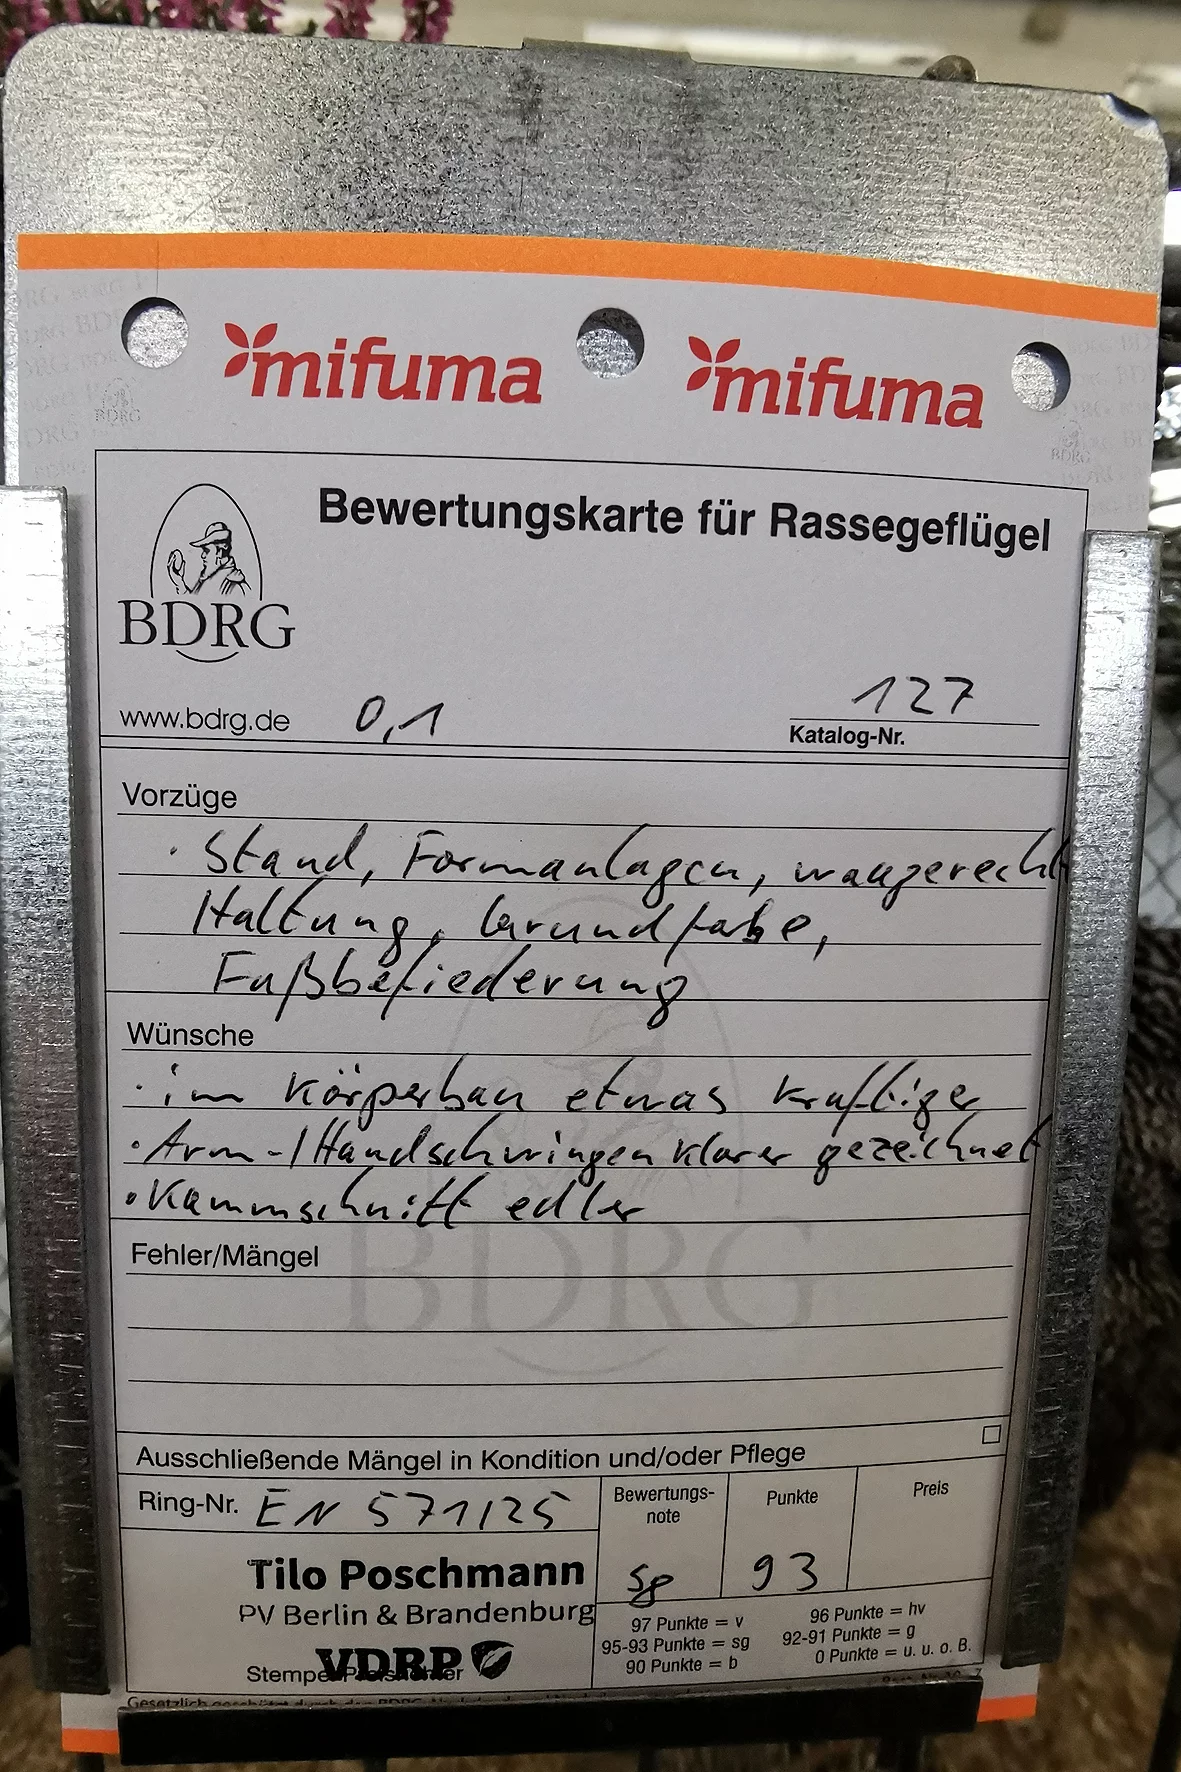 mifuma mifuma
Bewertungskarte für Rassegeflügel
BDRG
www.bdrg.de 0,1
127
Katalog-Nr.
Vorzüge
· Stand, Formanlagen, waagerecht
Haltung, Grundfarbe,
Fußbefiederung
Wünsche
· im Körperbau etwas kräftiger
· Arm-/Handschwingen klarer gezeichnet
· Kammschnitt edler
BDRG
Fehler/Mängel
Ausschließende Mängel in Kondition und/oder Pflege
Ring-Nr. EN 571/25
Bewertungs-
note
sg
Punkte
93
Preis
Tilo Poschmann
PV Berlin & Brandenburg
VDRP
Stempel Preisrichter
97 Punkte = v
95-93 Punkte = sg
90 Punkte = b
96 Punkte = hv
92-91 Punkte = g
0 Punkte = u. u. o. B.
Gesetzlich geschützt durch den BDRG